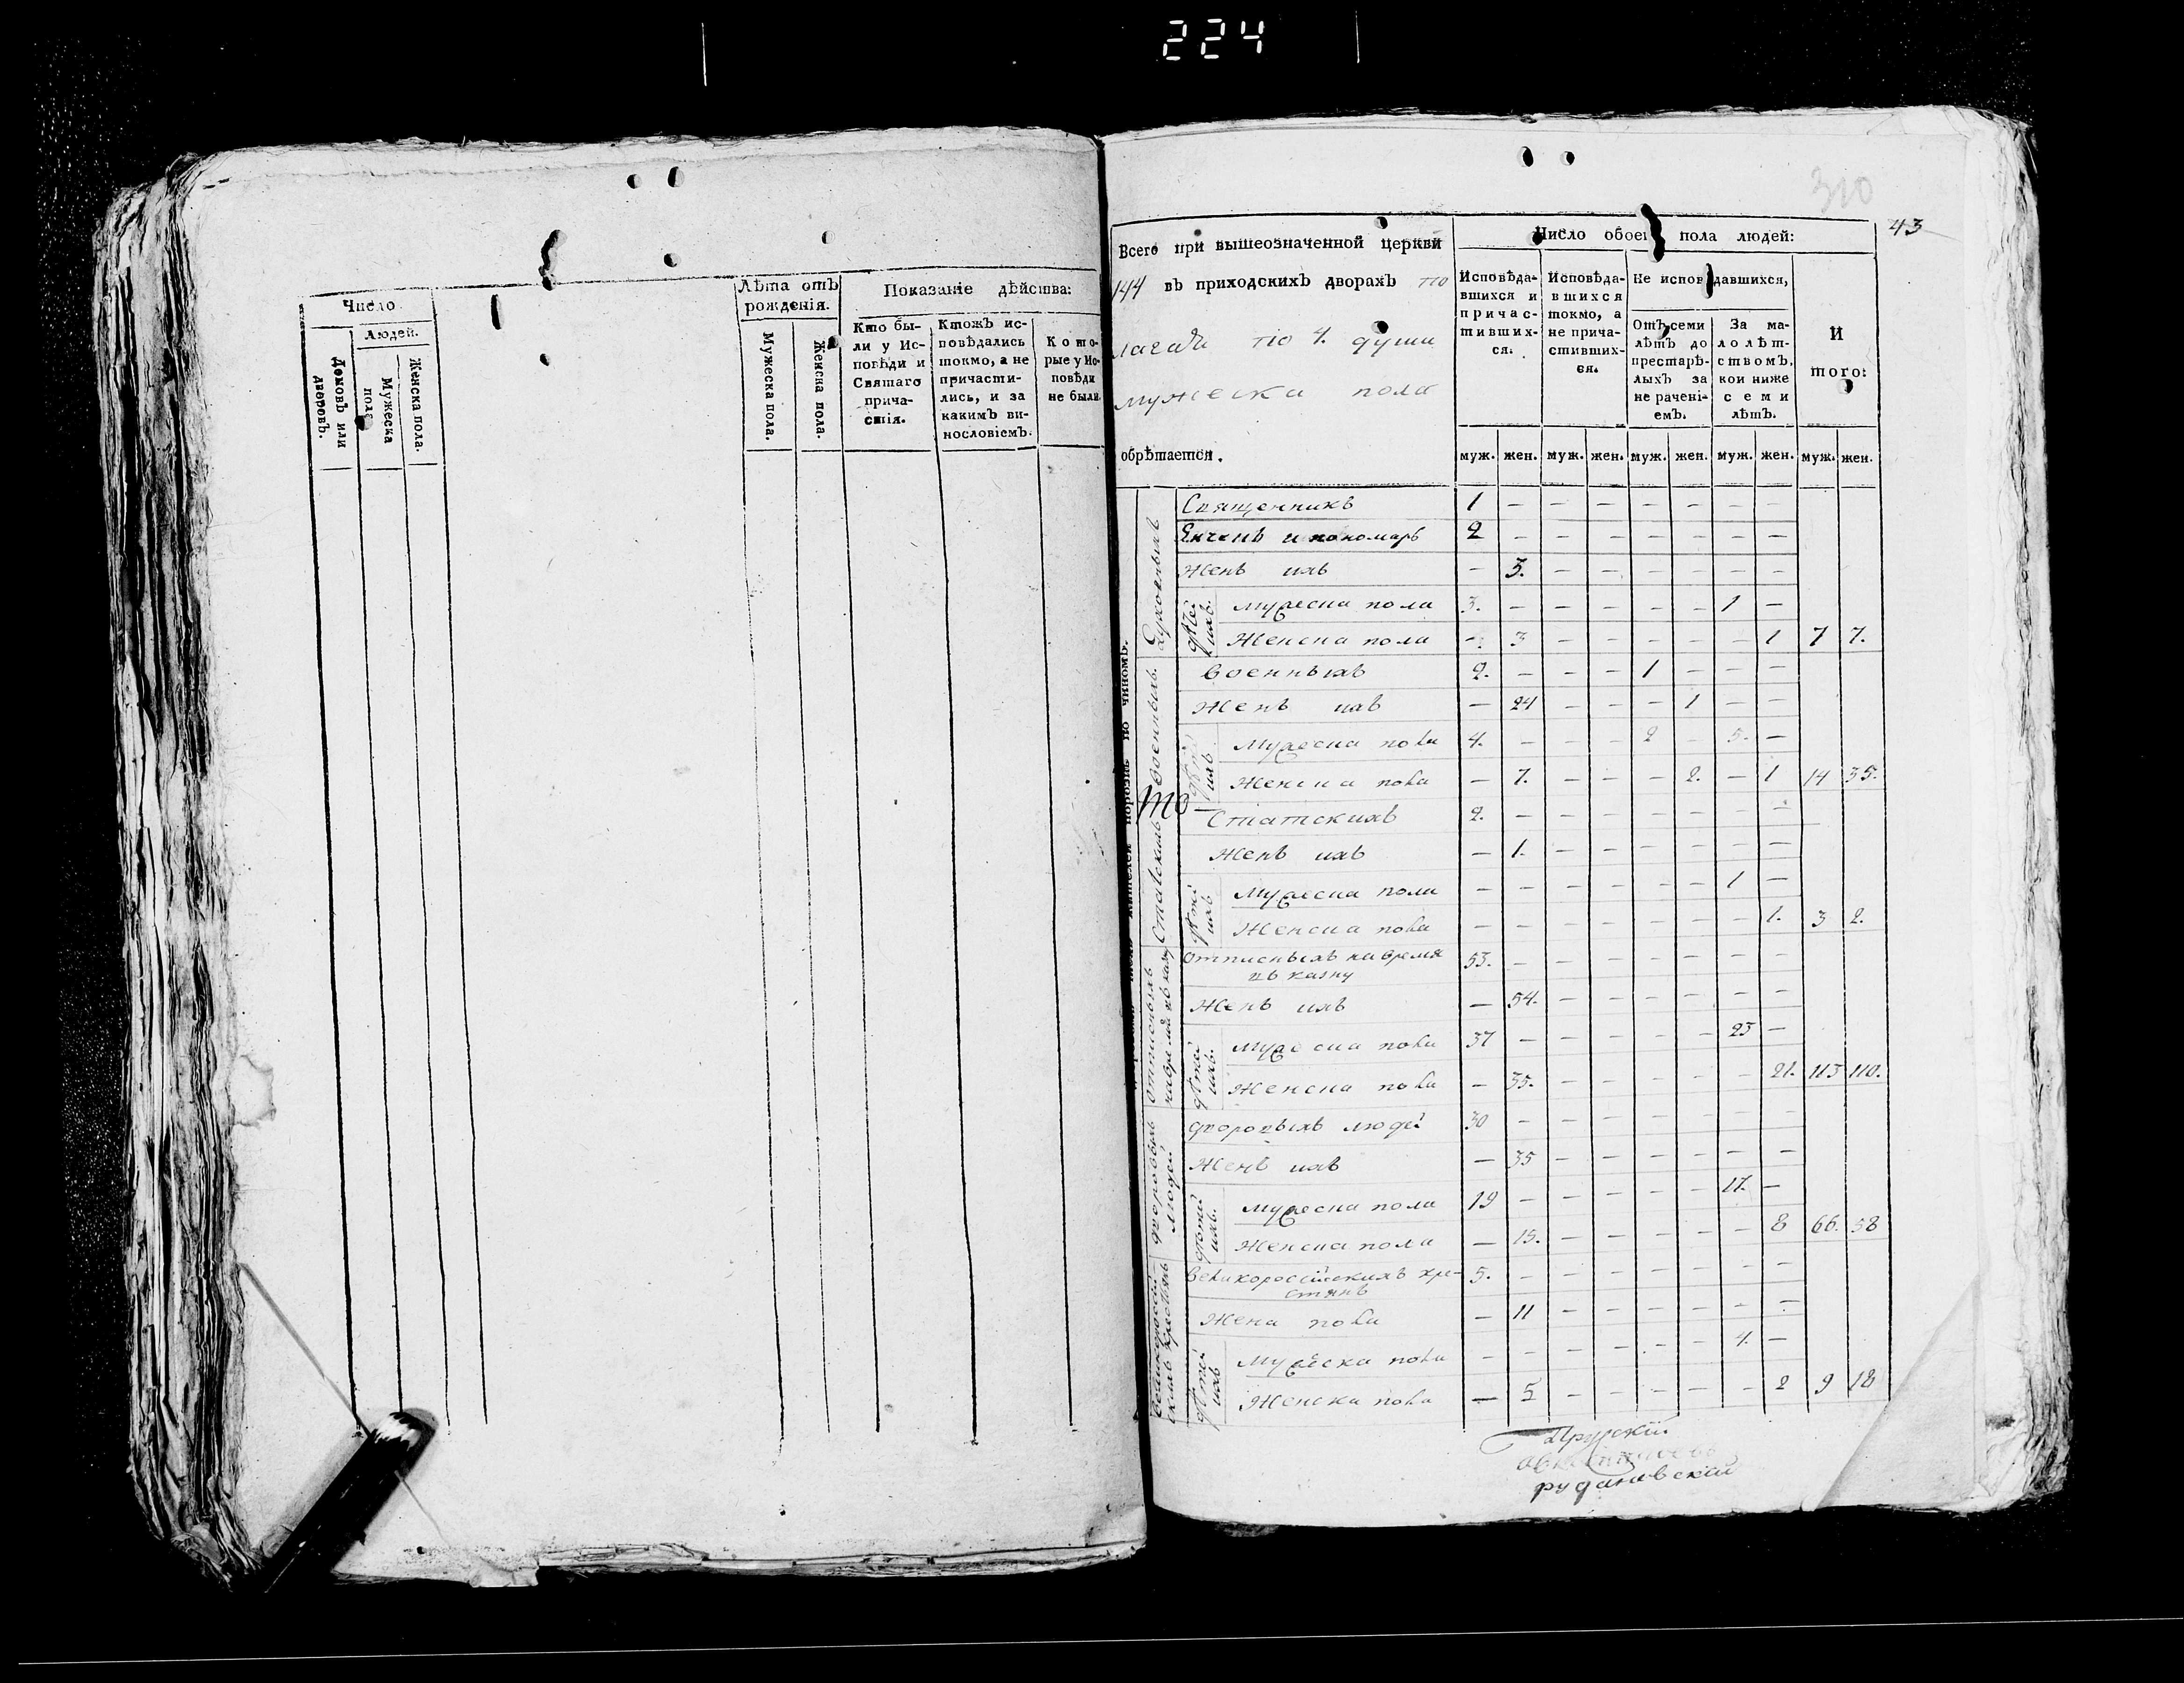 224
310
43
Число
Людей.
Домовъ или дворовъ.
Мужеска пола
Женска пола.
Лѣта отъ рожденія.
Мужеска пола.
Женска пола.
Показаніе дѣйства:
Кто бы-
ли у Ис-
повѣди и
Святаго
прича-
стія.
Ктожъ ис-
повѣдались
токмо, а не
причасти-
лись, и за
какимъ ви-
нословіемъ.
Кото-
рые у Ис-
повѣди
не были
Всего при вышеозначенной церкви
144 въ приходскихъ дворахъ по
лагая по 4. души
мужеска пола
обрѣтается.
Число обоего пола людей:
Исповѣда-
вшихся и
причас-
тивших-
ся.
Исповѣда-
вшихся
токмо, а
не прича-
стивших-
ся.
Не исповѣдавшихся,
Отъ семи
лѣтъ до
престарѣ-
лыхъ за
не рачені-
емъ.
За ма-
лолѣт-
ствомъ,
кои ниже
семи
лѣтъ.
И
того:
муж. жен. муж. жен. муж. жен. муж. жен. муж. жен.
Духовныхъ
Священникъ 1 — — — — — — —
и пономарь 2 — — — — — — —
Женъ ихъ — 3. — — — — — —
дѣтей ихъ.
Мужеска пола 3. — — — — — 1 —
Женска пола — 3 — — — — — 1 7 7.
Военныхъ.
Военныхъ 2. — — — 1 — — —
Женъ ихъ — 24 — — — 1 — —
дѣтей ихъ.
Мужеска пола 4. — — — 2 — 5. —
Женска пола — 7. — — — 2. — 1 14 35.
то
Статскихъ
Статскихъ 2. — — — — — — —
Женъ ихъ — 1. — — — — — —
дѣтей ихъ
Мужеска пола — — — — — — 1 —
Женска пола — — — — — — — 1. 3 2.
отписныхъ
на время въ казну
отписныхъ на время
въ казну 53. — — — — — — —
Женъ ихъ — 54. — — — — — —
дѣтей ихъ.
Мужеска пола 37 — — — — — 23 —
Женска пола — 35. — — — — — 21. 113 110.
дворовыхъ людей
дворовыхъ людей 30 — — — — — — —
Женъ ихъ — 35 — — — — — —
дѣтей ихъ.
Мужеска пола 19 — — — — — 17. —
Женска пола — 15. — — — — — 8 66. 58
великороссій-
скихъ крестьянъ
великороссійскихъ кре-
стянъ 5. — — — — — — —
Жена пола — 11 — — — — — —
дѣтей ихъ
Мужеска пола — — — — — — 4. —
Женска пола — 5 — — — — — 2 9 18
рудановскій